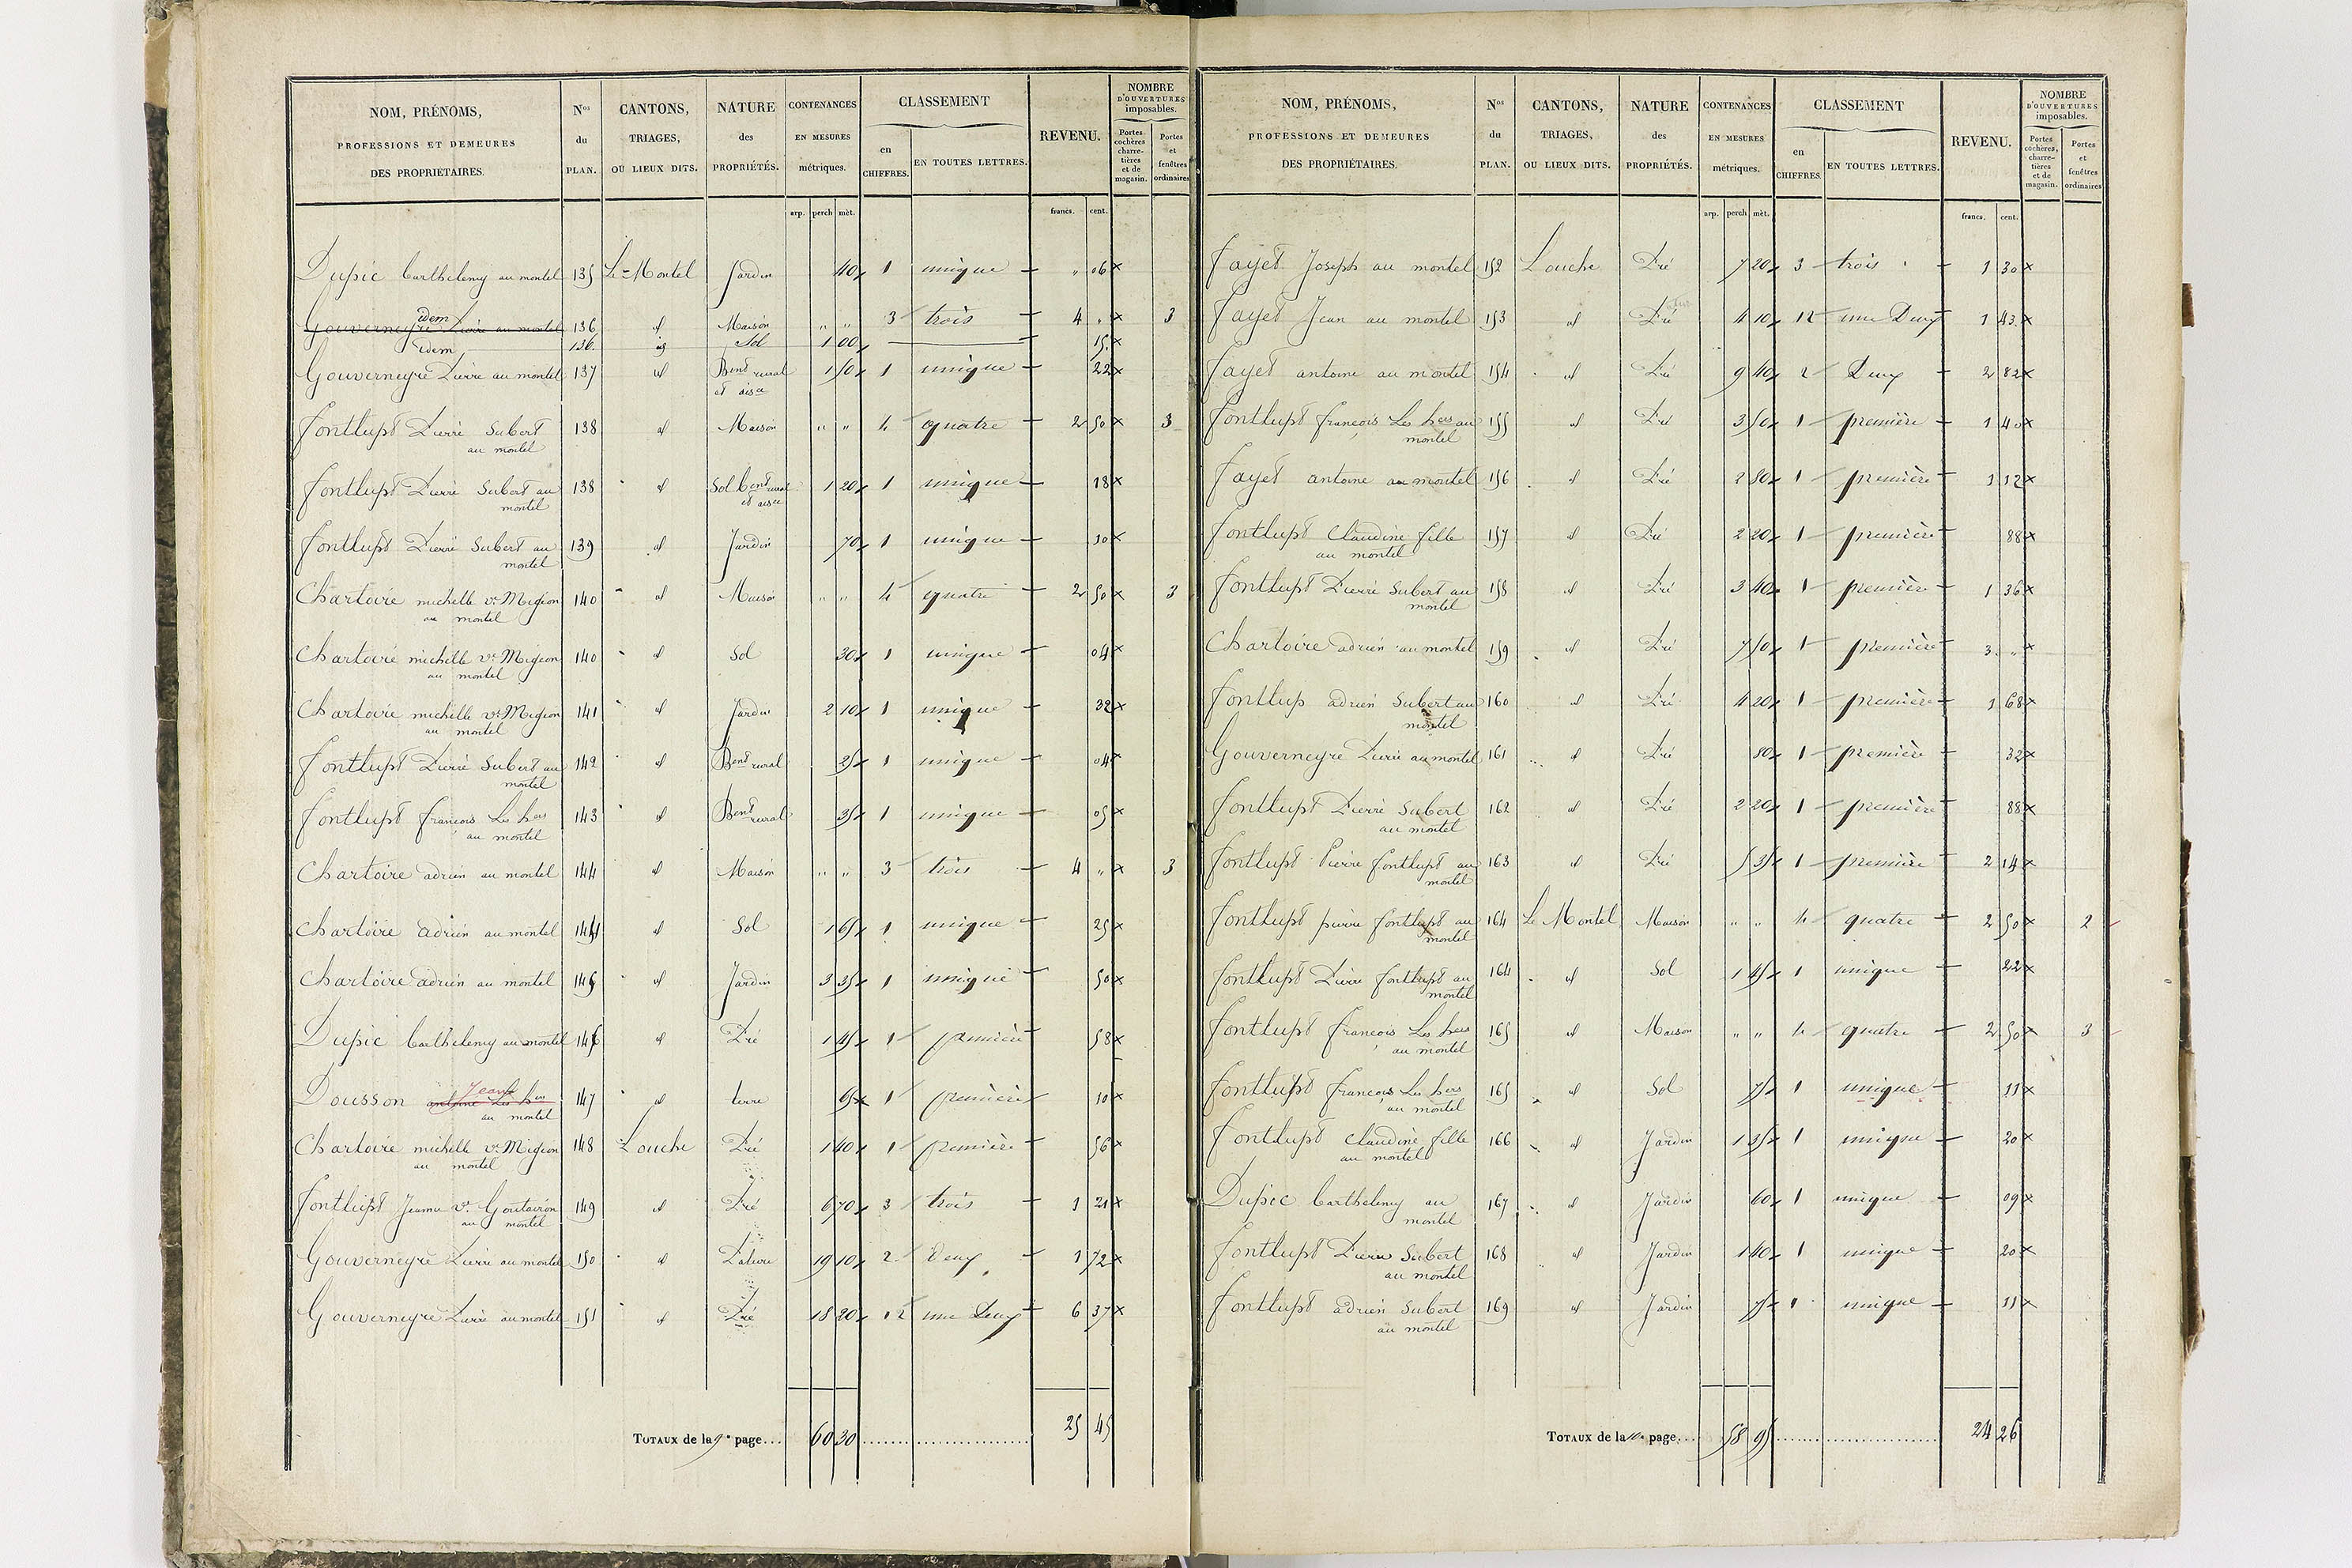 NOM, PRÉNOMS, PROFESSIONS ET DEMEURES DES PROPRIÉTAIRES. Nos du PLAN. CANTONS, TRIAGES, OU LIEUX DITS. NATURE des PROPRIÉTÉS. CONTENANCES EN MESURES métriques. CLASSEMENT en CHIFFRES. EN TOUTES LETTRES. REVENU. NOMBRE D'OUVERTURES imposables. Portes cochères charretières et de magasin. Portes et fenêtres ordinaires
arp. perch mèt. francs. cent.
Dupic barthelemy au montel 135 Le Montel Jardin 40 1 unique " 06
idem
Gouverneyre Pierre au montel 136 id Maison " " 3 trois 4 " 3
idem 136 id Sol 1 00 15
Gouverneyre Pierre au montel 137 id Bent rural 1 50 1 unique 22
et aisce
fontlupt Pierre Subert 138 id Maison " " 4 quatre 2 50 3
au montel
fontlupt Pierre Subert au 138 id Sol bent rural 1 20 1 unique 18
montel et aisce
fontlupt Pierre Subert au 139 id Jardin 70 1 unique 10
montel
Chartoire michelle ve Migeon 140 id Maison " " 4 quatre 2 50 3
au montel
Chartoire michelle ve Migeon 140 id Sol 30 1 unique 04
au montel
Chartoire michelle ve Migeon 141 id Jardin 2 10 1 unique 32
au montel
fontlupt Pierre Subert au 142 id Bent rural 25 1 unique 04
montel
fontlupt francois Les hers 143 id Bent rural 35 1 unique 05
au montel
Chartoire adrien au montel 144 id Maison " " 3 trois 4 " 3
Chartoire adrien au montel 144 id Sol 1 65 1 unique 25
Chartoire adrien au montel 145 id Jardin 3 35 1 unique 50
Dupic barthelemy au montel 146 id Pré 1 45 1 première 58
Jean
Dousson antoine Les hers 147 id terre 65 1 première 10
au montel
Chartoire michelle ve Migeon 148 Louche Pré 1 40 1 première 56
au montel
fontlupt Jeanne ve Goutairon 149 id Pré 6 70 3 trois 1 21
au montel
Gouverneyre Pierre au montel 150 id Pature 19 10 2 deux 1 72
Gouverneyre Pierre au montel 151 id Pré 18 20 12 une Deux 6 37
TOTAUX de la 9e page... 60 30 25 45
NOM, PRÉNOMS, PROFESSIONS ET DEMEURES DES PROPRIÉTAIRES. Nos du PLAN. CANTONS, TRIAGES, OU LIEUX DITS. NATURE des PROPRIÉTÉS. CONTENANCES EN MESURES métriques. CLASSEMENT en CHIFFRES EN TOUTES LETTRES. REVENU. NOMBRE D'OUVERTURES imposables. Portes cochères, charretières et de magasin. Portes et fenêtres ordinaires
arp. perch mèt. francs. cent.
fayet Joseph au montel 152 Louche Pré 7 20 3 trois 1 30
fayet Jean au montel 153 id Pré 4 10 12 une Deux 1 43
fayet antoine au montel 154 id Pré 9 40 2 Deux 2 82
fontlupt françois Les hers au 155 id Pré 3 50 1 première 1 40
montel
fayet antoine au montel 156 id Pré 2 80 1 première 1 12
fontlupt Claudine fille 157 id Pré 2 20 1 première 88
au montel
fontlupt Pierre Subert au 158 id Pré 3 40 1 première 1 36
montel
Chartoire adrien au montel 159 id Pré 7 50 1 première 3 "
fontlup adrien Subert au 160 id Pré 4 20 1 première 1 68
montel
Gouverneyre Pierre au montel 161 id Pré 80 1 première 32
fontlupt Pierre Subert 162 id Pré 2 20 1 première 88
au montel
fontlupt Pierre fontlupt au 163 id Pré 5 35 1 première 2 14
montel
fontlupt pierre fontlupt au 164 Le Montel Maison " " 4 quatre 2 50 2
montel
fontlupt Pierre fontlupt au 164 id Sol 1 45 1 unique 22
montel
fontlupt francois Les hers 165 id Maison " " 4 quatre 2 50 3
au montel
fontlupt francois Les hers 165 id Sol 75 1 unique 11
au montel
fontlupt Claudine fille 166 id Jardin 1 35 1 unique 20
au montel
Dupic barthelemy au 167 id Jardin 60 1 unique 09
montel
fontlupt Pierre Subert 168 id Jardin 1 40 1 unique 20
au montel
fontlupt adrien Subert 169 id Jardin 75 1 unique 11
au montel
TOTAUX de la 10e page... 58 95 24 26